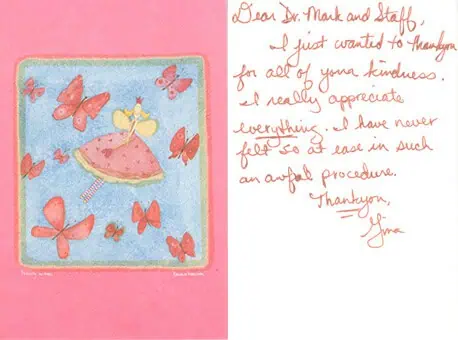 Dear Dr. Mark and Staff,
I just wanted to thankyou
for all of your kindness.
I really appreciate
everything. I have never
felt so at ease in such
an awful procedure.
Thankyou,
Gina